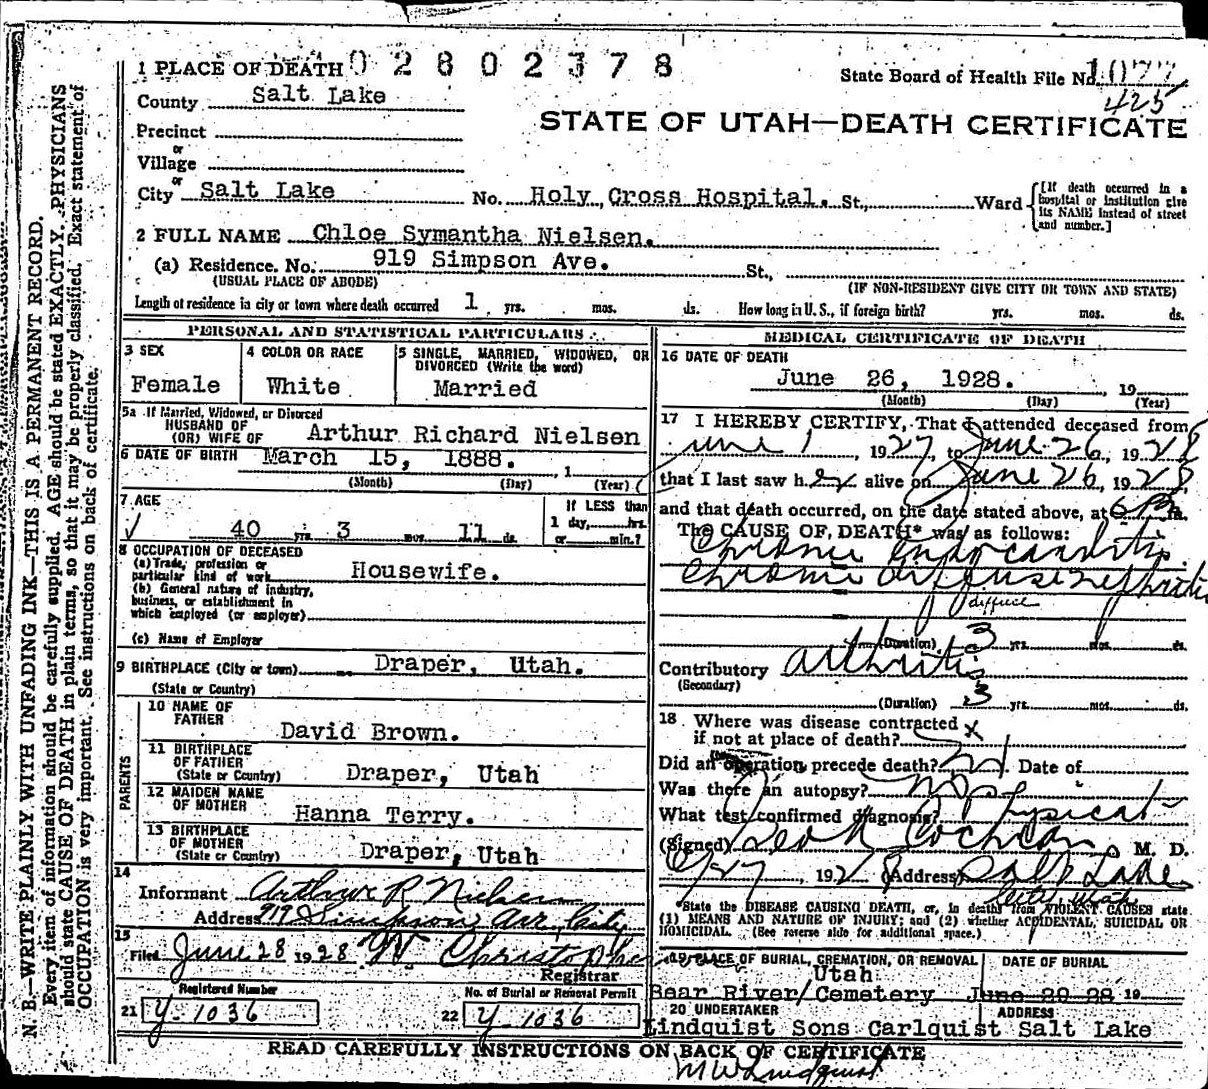 1 PLACE OF DEATH 02802378
State Board of Health File No. 1077
425
County Salt Lake
STATE OF UTAH—DEATH CERTIFICATE
Precinct
or
Village
or
City Salt Lake No. Holy Cross Hospital. St., Ward [If death occurred in a hospital or institution give its NAME instead of street and number.]
2 FULL NAME Chloe Symantha Nielsen.
(a) Residence. No. 919 Simpson Ave. St.,
(USUAL PLACE OF ABODE) (IF NON-RESIDENT GIVE CITY OR TOWN AND STATE)
Length of residence in city or town where death occurred 1 yrs. mos. ds. How long in U. S., if foreign birth? yrs. mos. ds.
PERSONAL AND STATISTICAL PARTICULARS
3 SEX
Female
4 COLOR OR RACE
White
5 SINGLE, MARRIED, WIDOWED, OR DIVORCED (Write the word)
Married
5a If Married, Widowed, or Divorced
HUSBAND OF
(OR) WIFE OF Arthur Richard Nielsen
6 DATE OF BIRTH March 15, 1888. 1
(Month) (Day) (Year)
7 AGE
40 yrs. 3 mos. 11 ds.
If LESS than
1 day, hrs.
or min.?
8 OCCUPATION OF DECEASED
(a) Trade, profession or
particular kind of work Housewife.
(b) General nature of industry,
business, or establishment in
which employed (or employer)
(c) Name of Employer
9 BIRTHPLACE (City or town) Draper, Utah.
(State or Country)
PARENTS
10 NAME OF
FATHER
David Brown.
11 BIRTHPLACE
OF FATHER
(State or Country) Draper, Utah
12 MAIDEN NAME
OF MOTHER
Hanna Terry.
13 BIRTHPLACE
OF MOTHER
(State or Country) Draper, Utah
14
Informant Arthur R Nielsen
Address 919 Simpson Ave, City
15
Filed June 28 1928 W Christopherson
Registrar
Registered Number
21 Y-1036
No. of Burial or Removal Permit
22 Y-1036
MEDICAL CERTIFICATE OF DEATH
16 DATE OF DEATH
June 26, 1928. 19
(Month) (Day) (Year)
17 I HEREBY CERTIFY, That I attended deceased from
June 1, 1927, to June 26, 1928
that I last saw her alive on June 26, 1928,
and that death occurred, on the date stated above, at 6 P m.
The CAUSE OF DEATH* was as follows:
Chronic Endocarditis
Chronic diffuse nephritis
diffuse
(Duration) 3 yrs. mos. ds.
Contributory arthritis
(Secondary)
(Duration) 3 yrs. mos. ds.
18 Where was disease contracted
if not at place of death? x
Did an operation precede death? no Date of
Was there an autopsy? no
What test confirmed diagnosis? Physical
(Signed) Geo N Cochran, M. D.
6/27, 1928 (Address) Salt Lake
City Utah
*State the DISEASE CAUSING DEATH, or, in deaths from VIOLENT CAUSES state
(1) MEANS AND NATURE OF INJURY; and (2) whether ACCIDENTAL, SUICIDAL OR
HOMICIDAL. (See reverse side for additional space.)
19 PLACE OF BURIAL, CREMATION, OR REMOVAL
Utah
Bear River/Cemetery
DATE OF BURIAL
June 29 28 19
20 UNDERTAKER
Lindquist Sons Carlquist
ADDRESS
Salt Lake
READ CAREFULLY INSTRUCTIONS ON BACK OF CERTIFICATE
M W Lindquist
N. B.—WRITE PLAINLY WITH UNFADING INK—THIS IS A PERMANENT RECORD.
Every item of information should be carefully supplied. AGE should be stated EXACTLY. PHYSICIANS
should state CAUSE OF DEATH in plain terms, so that it may be properly classified. Exact statement of
OCCUPATION is very important. See instructions on back of certificate.